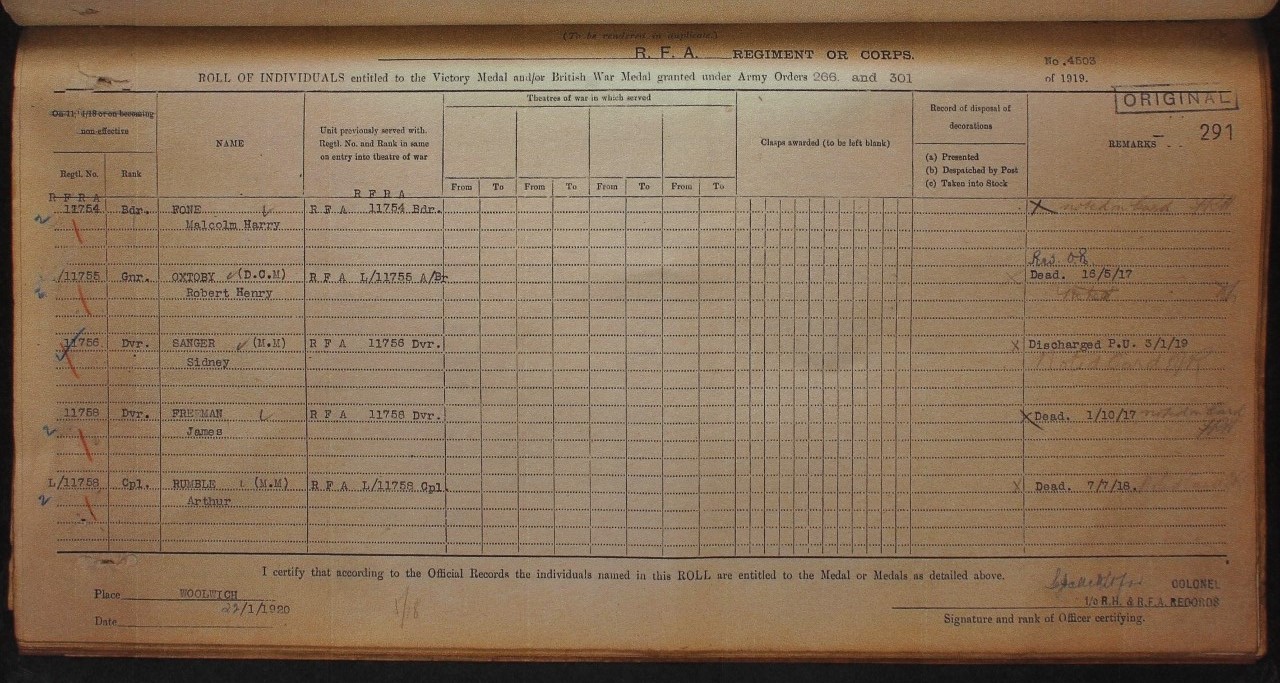 (To be rendered in duplicate.)
R. F. A. REGIMENT OR CORPS.
No. 4503
ROLL OF INDIVIDUALS entitled to the Victory Medal and/or British War Medal granted under Army Orders 266. and 301 of 1919.
ORIGINAL
291
On 11/11/18 or on becoming non-effective
Regtl. No. Rank
NAME
Unit previously served with. Regtl. No. and Rank in same on entry into theatre of war
Theatres of war in which served
From To From To From To From To
Clasps awarded (to be left blank)
Record of disposal of decorations
(a) Presented
(b) Despatched by Post
(c) Taken into Stock
REMARKS
R F R A R F R A
11754 Bdr. FONE R F A 11754 Bdr. noted on Card
2 Malcolm Harry
/11755 Gnr. OXTOBY (D.C.M) R F A L/11755 A/Br Dead. 16/5/17
2 Robert Henry Noted
11756 Dvr. SANGER (M.M) R F A 11756 Dvr. Discharged P.U. 3/1/19
Sidney Noted Card
11758 Dvr. FREEMAN R F A 11758 Dvr. Dead. 1/10/17 noted on Card
2 James
L/11758 Cpl. RUMBLE (M.M) R F A L/11758 Cpl. Dead. 7/7/18.
2 Arthur
I certify that according to the Official Records the individuals named in this ROLL are entitled to the Medal or Medals as detailed above.
Place WOOLWICH
22/1/1920
Date
COLONEL
I/c R.H. & R.F.A. RECORDS
Signature and rank of Officer certifying.